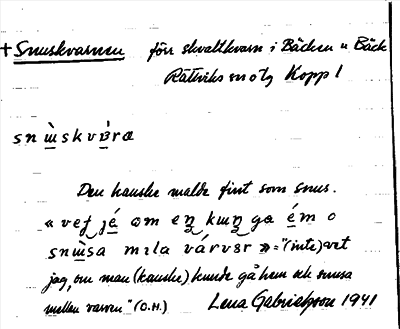 + Snuskvarnen för skvaltkvarn i Bäcken u Bäck
Rättviks sn o tg Kopp l
snɯ̀skvɜ̀ra
Den kanske malde fint som snus.
« vef jé om eŋ kɯŋ ga ém o
snɯ̀sa mɩla várvɜr » = "(inte) vet
jag, om man (kanske) kunde gå hem och snusa
mellan varven" (O.H.) Lena Gabrielsson 1941